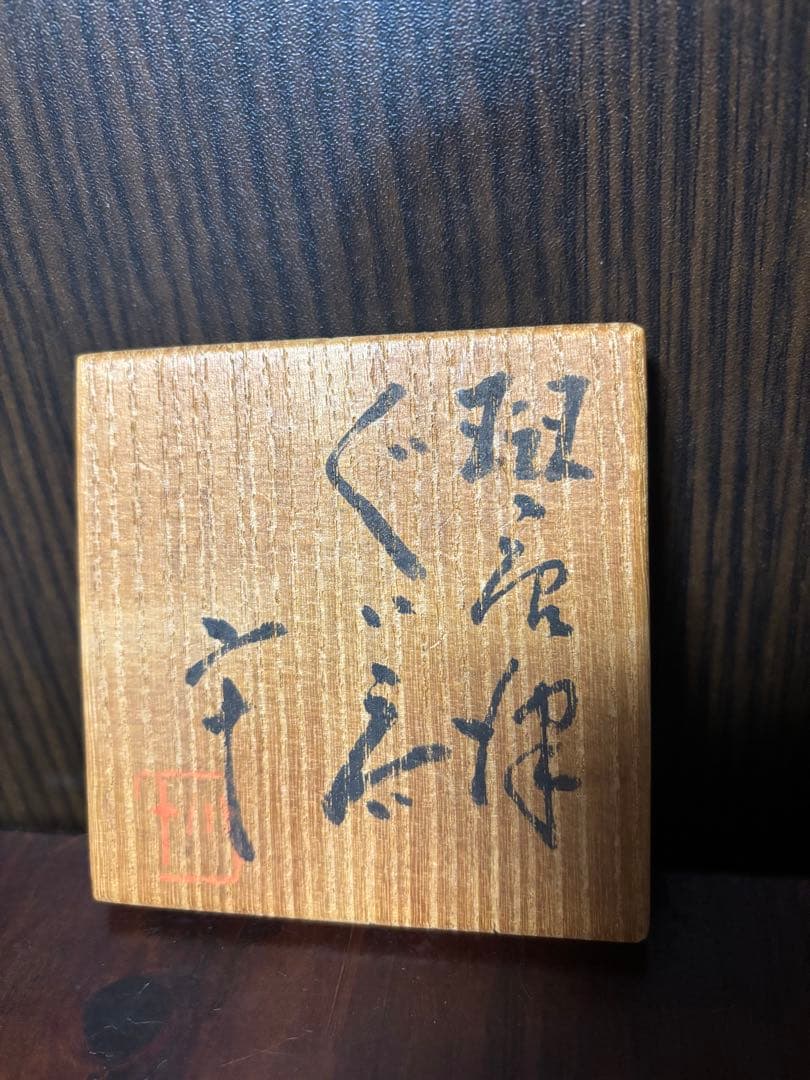 斑唐津
ぐい呑